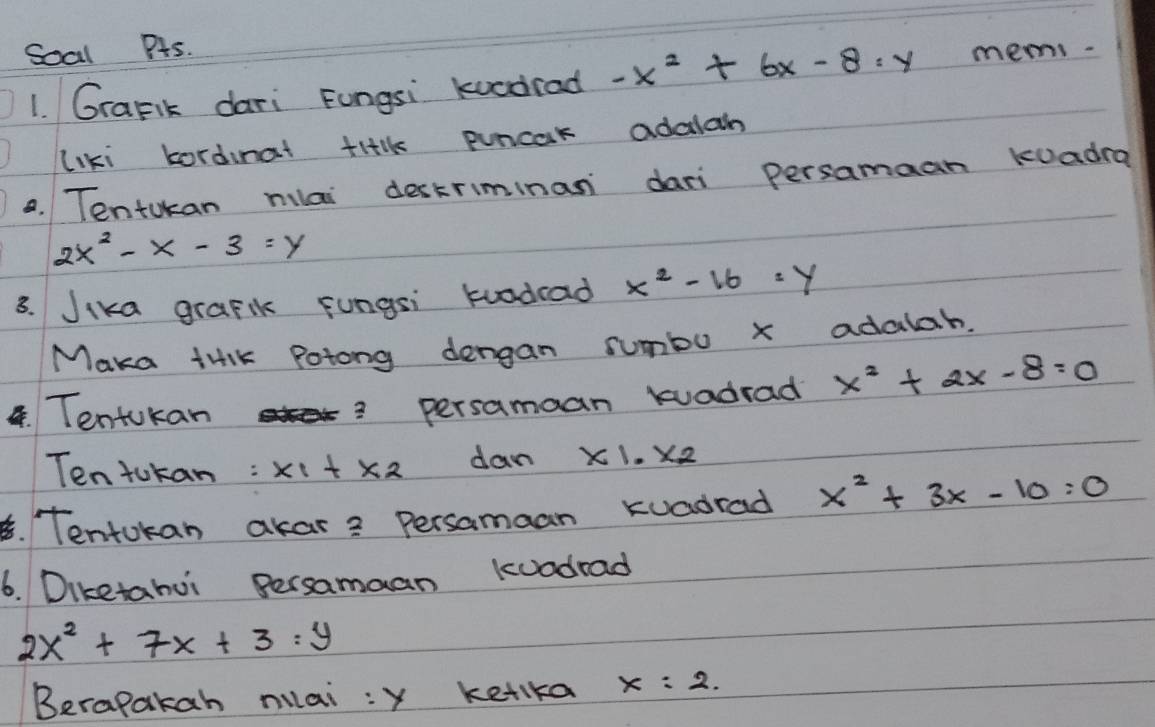 Soal Pts.
1. Grafik dari Fungsi kuadrad -x² + 6x - 8 = y memi-
liki kordinat titik puncak adalah
2. Tentukan nilai deskriminasi dari persamaan kuadra
2x² - x - 3 = y
3. Jika grafik fungsi kuadrad x² - 16 = y
Maka titik Potong dengan sumbu x adalah.
4. Tentukan ? persamaan kuadrad x² + 2x - 8 = 0
Tentukan : x1 + x2 dan x1 . x2
5. Tentukan akar² Persamaan kuadrad x² + 3x - 10 = 0
6. Diketahui Persamaan kuadrad
2x² + 7x + 3 = y
Berapakah nilai : y ketika x = 2.